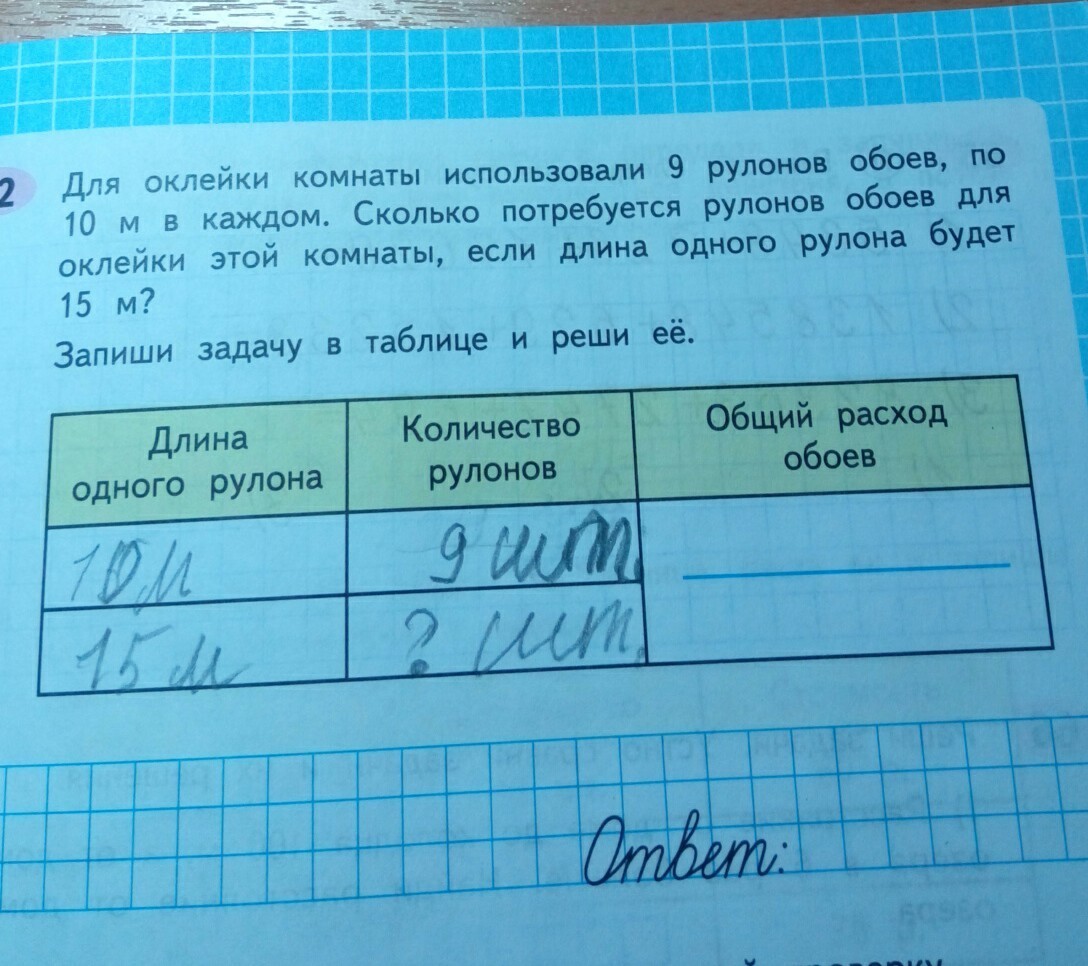 2
Для оклейки комнаты использовали 9 рулонов обоев, по
10 м в каждом. Сколько потребуется рулонов обоев для
оклейки этой комнаты, если длина одного рулона будет
15 м?
Запиши задачу в таблице и реши её.
Длина
одного рулона
Количество
рулонов
Общий расход
обоев
10 м
9 шт.
15 м
? шт.
Ответ: